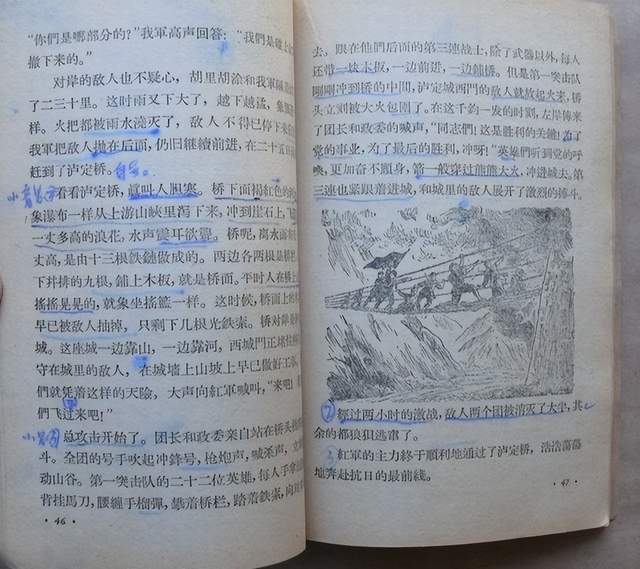 “你們是哪部分的？”我軍高声回答：“我們是
撤下来的。”
对岸的敌人也不疑心，胡里胡涂和我軍隔
了二三十里。这时雨又下大了，越下越猛，象
样。火把都被雨水澆灭了，敌人不得已停下来
我軍把敌人抛在后面，仍旧继續前进，在二十五
赶到了泸定桥。
看看泸定桥，眞叫人胆寒。桥下面褐紅色的
象瀑布一样从上游山峡里泻下来，冲到崖石上，飞
一丈多高的浪花，水声震耳欲聾。桥呢，离水面
丈高，是由十三根鉄鏈做成的。两边各两根是桥
下幷排的九根，鋪上木板，就是桥面。平时人在桥上
搖搖晃晃的，就象坐搖籃一样。这时候，桥面上的
早已被敌人抽掉，只剩下几根光鉄索。桥对岸
城。这座城一边靠山，一边靠河，西城門正堵
守在城里的敌人，在城墙上山坡上早已做好工
們就凭着这样的天險，大声向紅軍喊叫，“来吧！
們飞过来吧！”
总攻击开始了。团长和政委亲自站在桥头
斗。全团的号手吹起冲鋒号，枪炮声，喊杀声，
动山谷。第一突击队的二十二位英雄，每人手拿
背挂馬刀，腰纏手榴彈，攀着桥栏，踏着鉄索，向
• 46 •
去。跟在他們后面的第三連战士，除了武器以外，每人
还带一块木板，一边前进，一边鋪桥。但是第一突击队
剛剛冲到桥的中間，泸定城西門的敌人就放起火来，桥
头立刻被大火包围了。在这千鈞一发的时刻，左岸傳来
了团长和政委的喊声，“同志們！这是胜利的关鍵！为了
党的事业，为了最后的胜利，冲呀！”英雄們听到党的呼
唤，更加奋不顾身，箭一般穿过熊熊大火，冲进城去。第
三連也紧跟着进城，和城里的敌人展开了激烈的搏斗。
經过两小时的激战，敌人两个团被消灭了大半，其
余的都狼狽逃竄了。
紅軍的主力終于順利地通过了泸定桥，浩浩蕩蕩
地奔赴抗日的最前綫。
• 47 •